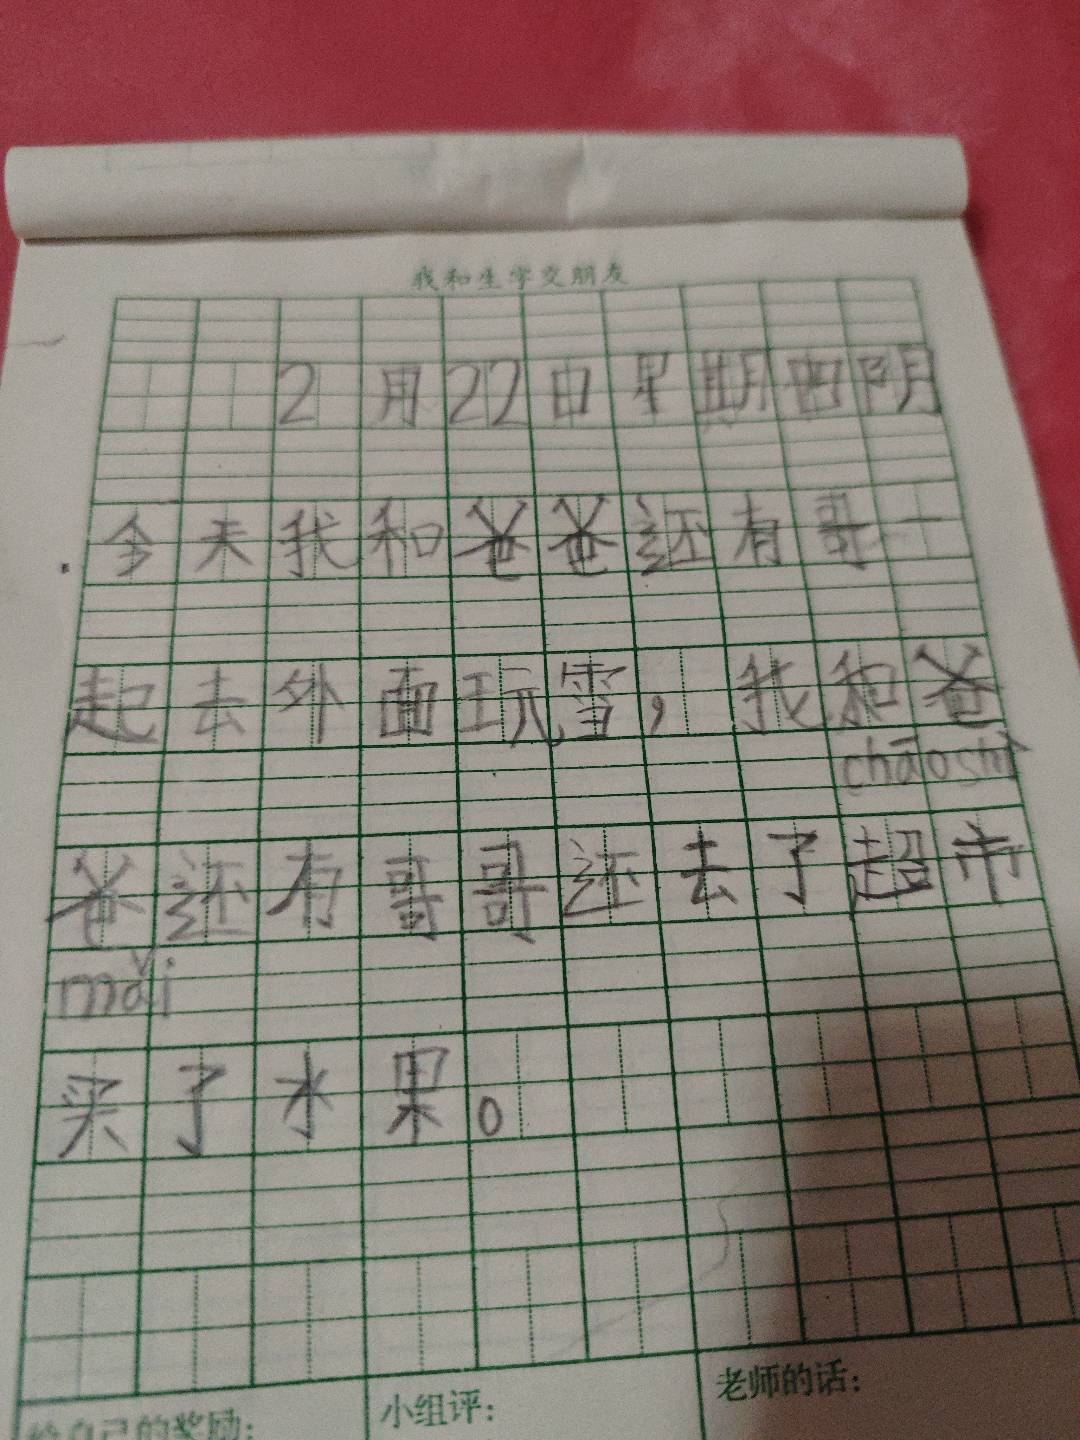 我和生字交朋友
2月22日星期四阴
今天我和爸爸还有哥一
起去外面玩雪，我和爸
chāoshì
爸还有哥哥还去了超市
mǎi
买了水果。
给自己的奖励：
小组评：
老师的话：